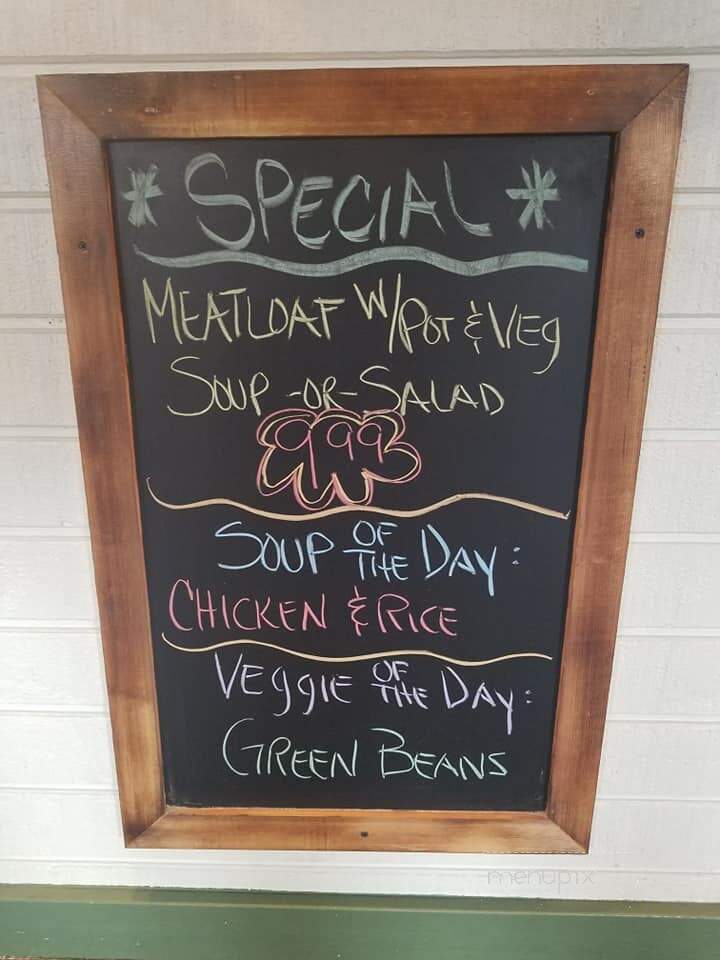 * SPECIAL *
MEATLOAF W/POT & VEG
SOUP -OR- SALAD
999
SOUP OF THE DAY:
CHICKEN & RICE
VEGGIE OF THE DAY:
GREEN BEANS
menupix